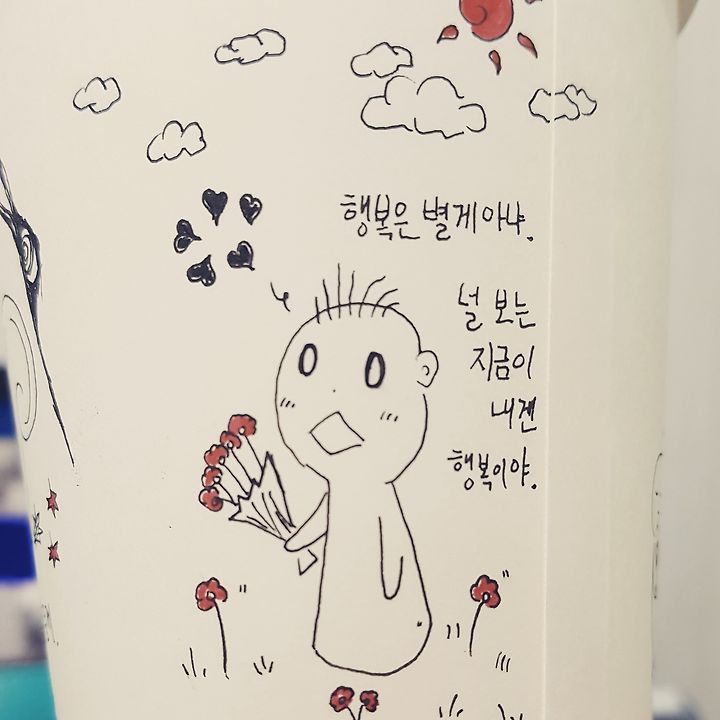 행복은 별게아냐.
널 보는
지금이
내겐
행복이야.